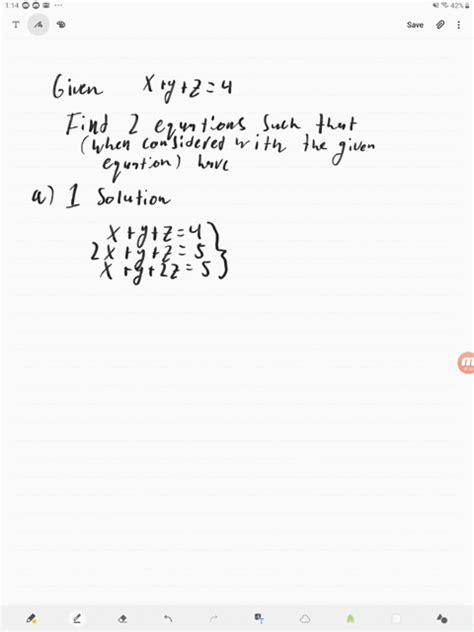 1:14
42%
T
Save
Given x+y+z=4
Find 2 equations such that
(when considered with the given
equation) have
a) 1 Solution
x+y+z=4
2x+y+z=5
x+y+2z=5